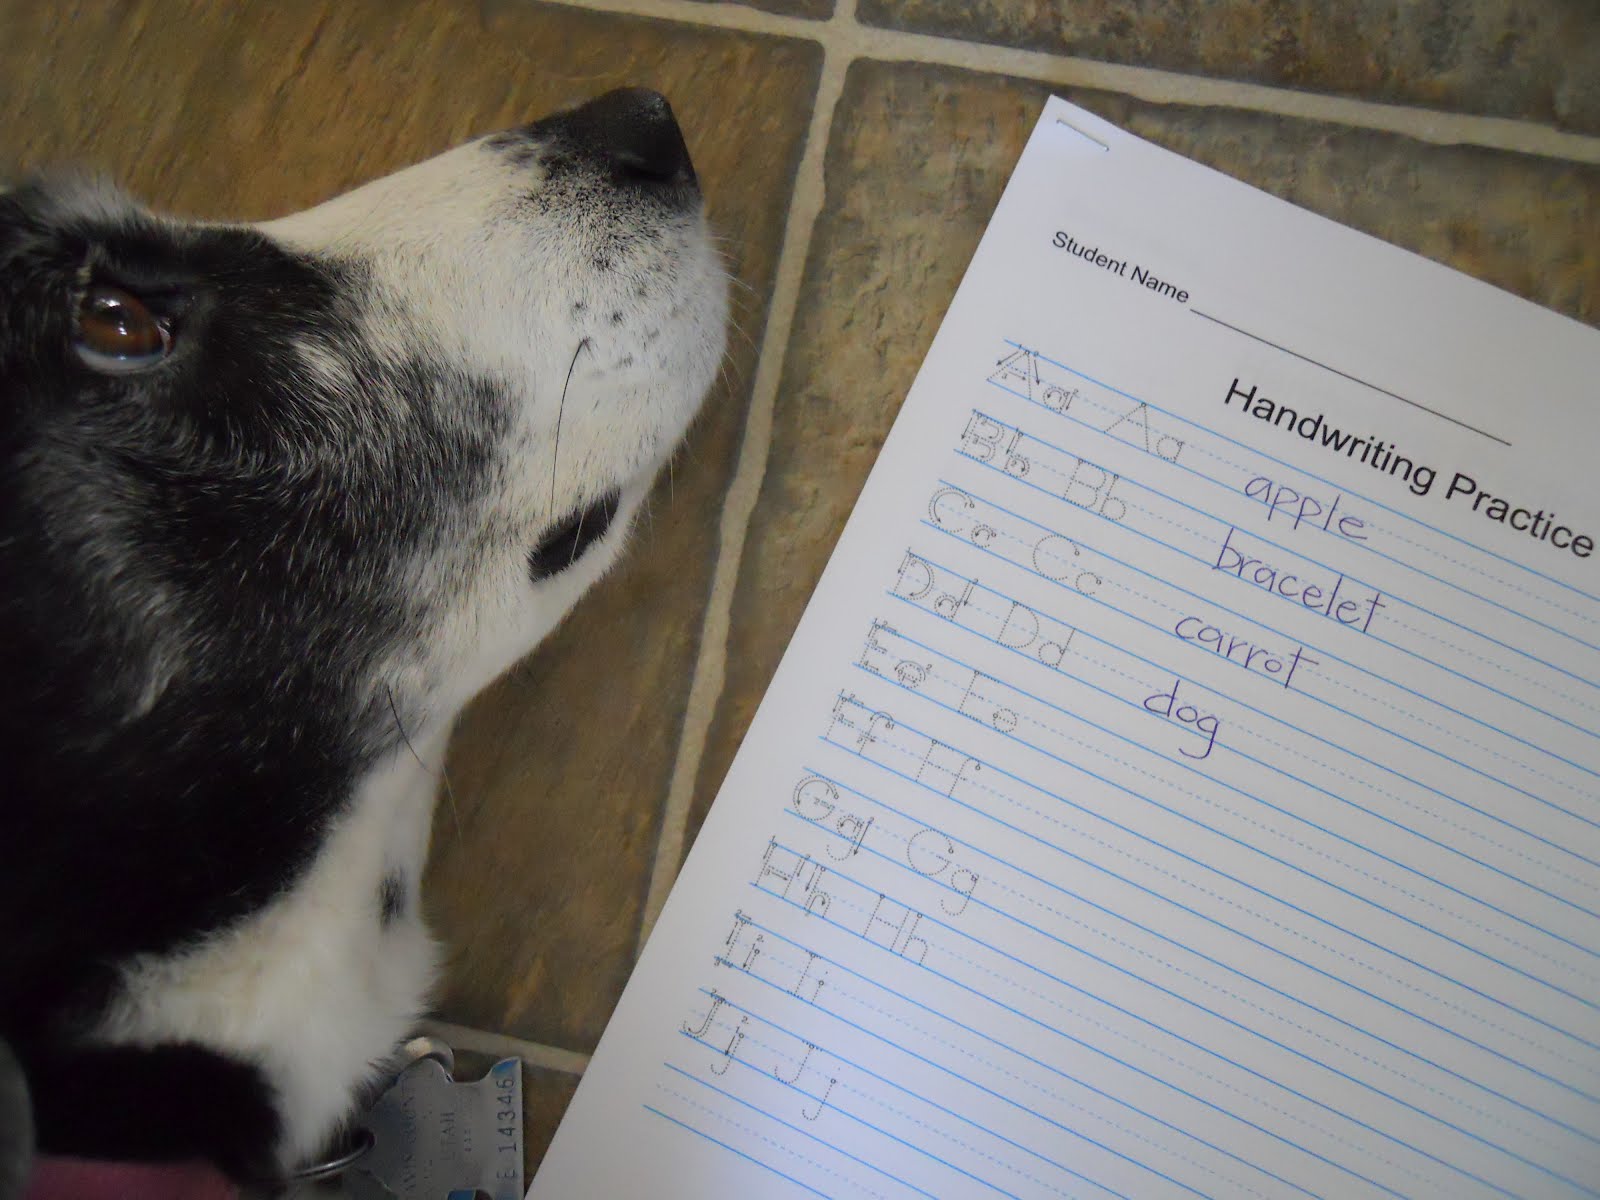 Student Name
Handwriting Practice
Aa Aa apple
Bb Bb bracelet
Cc Cc carrot
Dd Dd dog
Ee Ee
Ff Ff
Gg Gg
Hh Hh
Ii Ii
Jj Jj
UTAH
14346